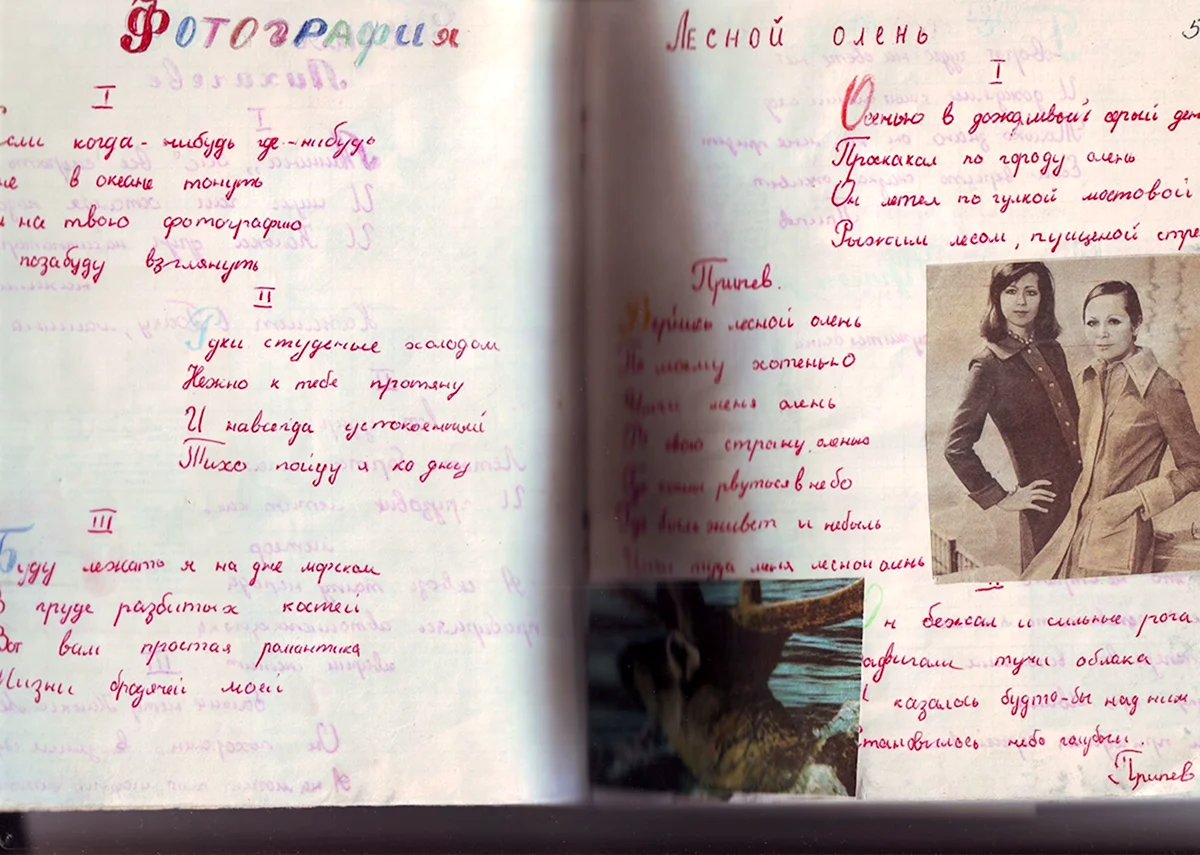 Фотография
I
сли когда-нибудь где-нибудь
не в океане тонуть
на твою фотографию
позабуду взглянуть
II
Руки студеные холодом
Нежно к тебе протяну
И навсегда успокоенный
Тихо пойду я ко дну
III
Буду лежать я на дне морском
В груде разбитых костей
Вот вам простая романтика
Жизни бродячей моей
Лесной олень
5
I
Осенью в дождливый серый ден
Проскакал по городу олень
Он летел по гулкой мостовой
Рыжим лесом, пущеной стре
Припев.
Вернись лесной олень
По моему хотенью
меня олень
В свою страну оленью
Где сосны рвуться в небо
Где быль живет и небыль
туда меня лесной олень
II
н бежал и сильные рога
адигали тучи облака
казалось будто-бы над ним
становилось небо голубым.
Припев